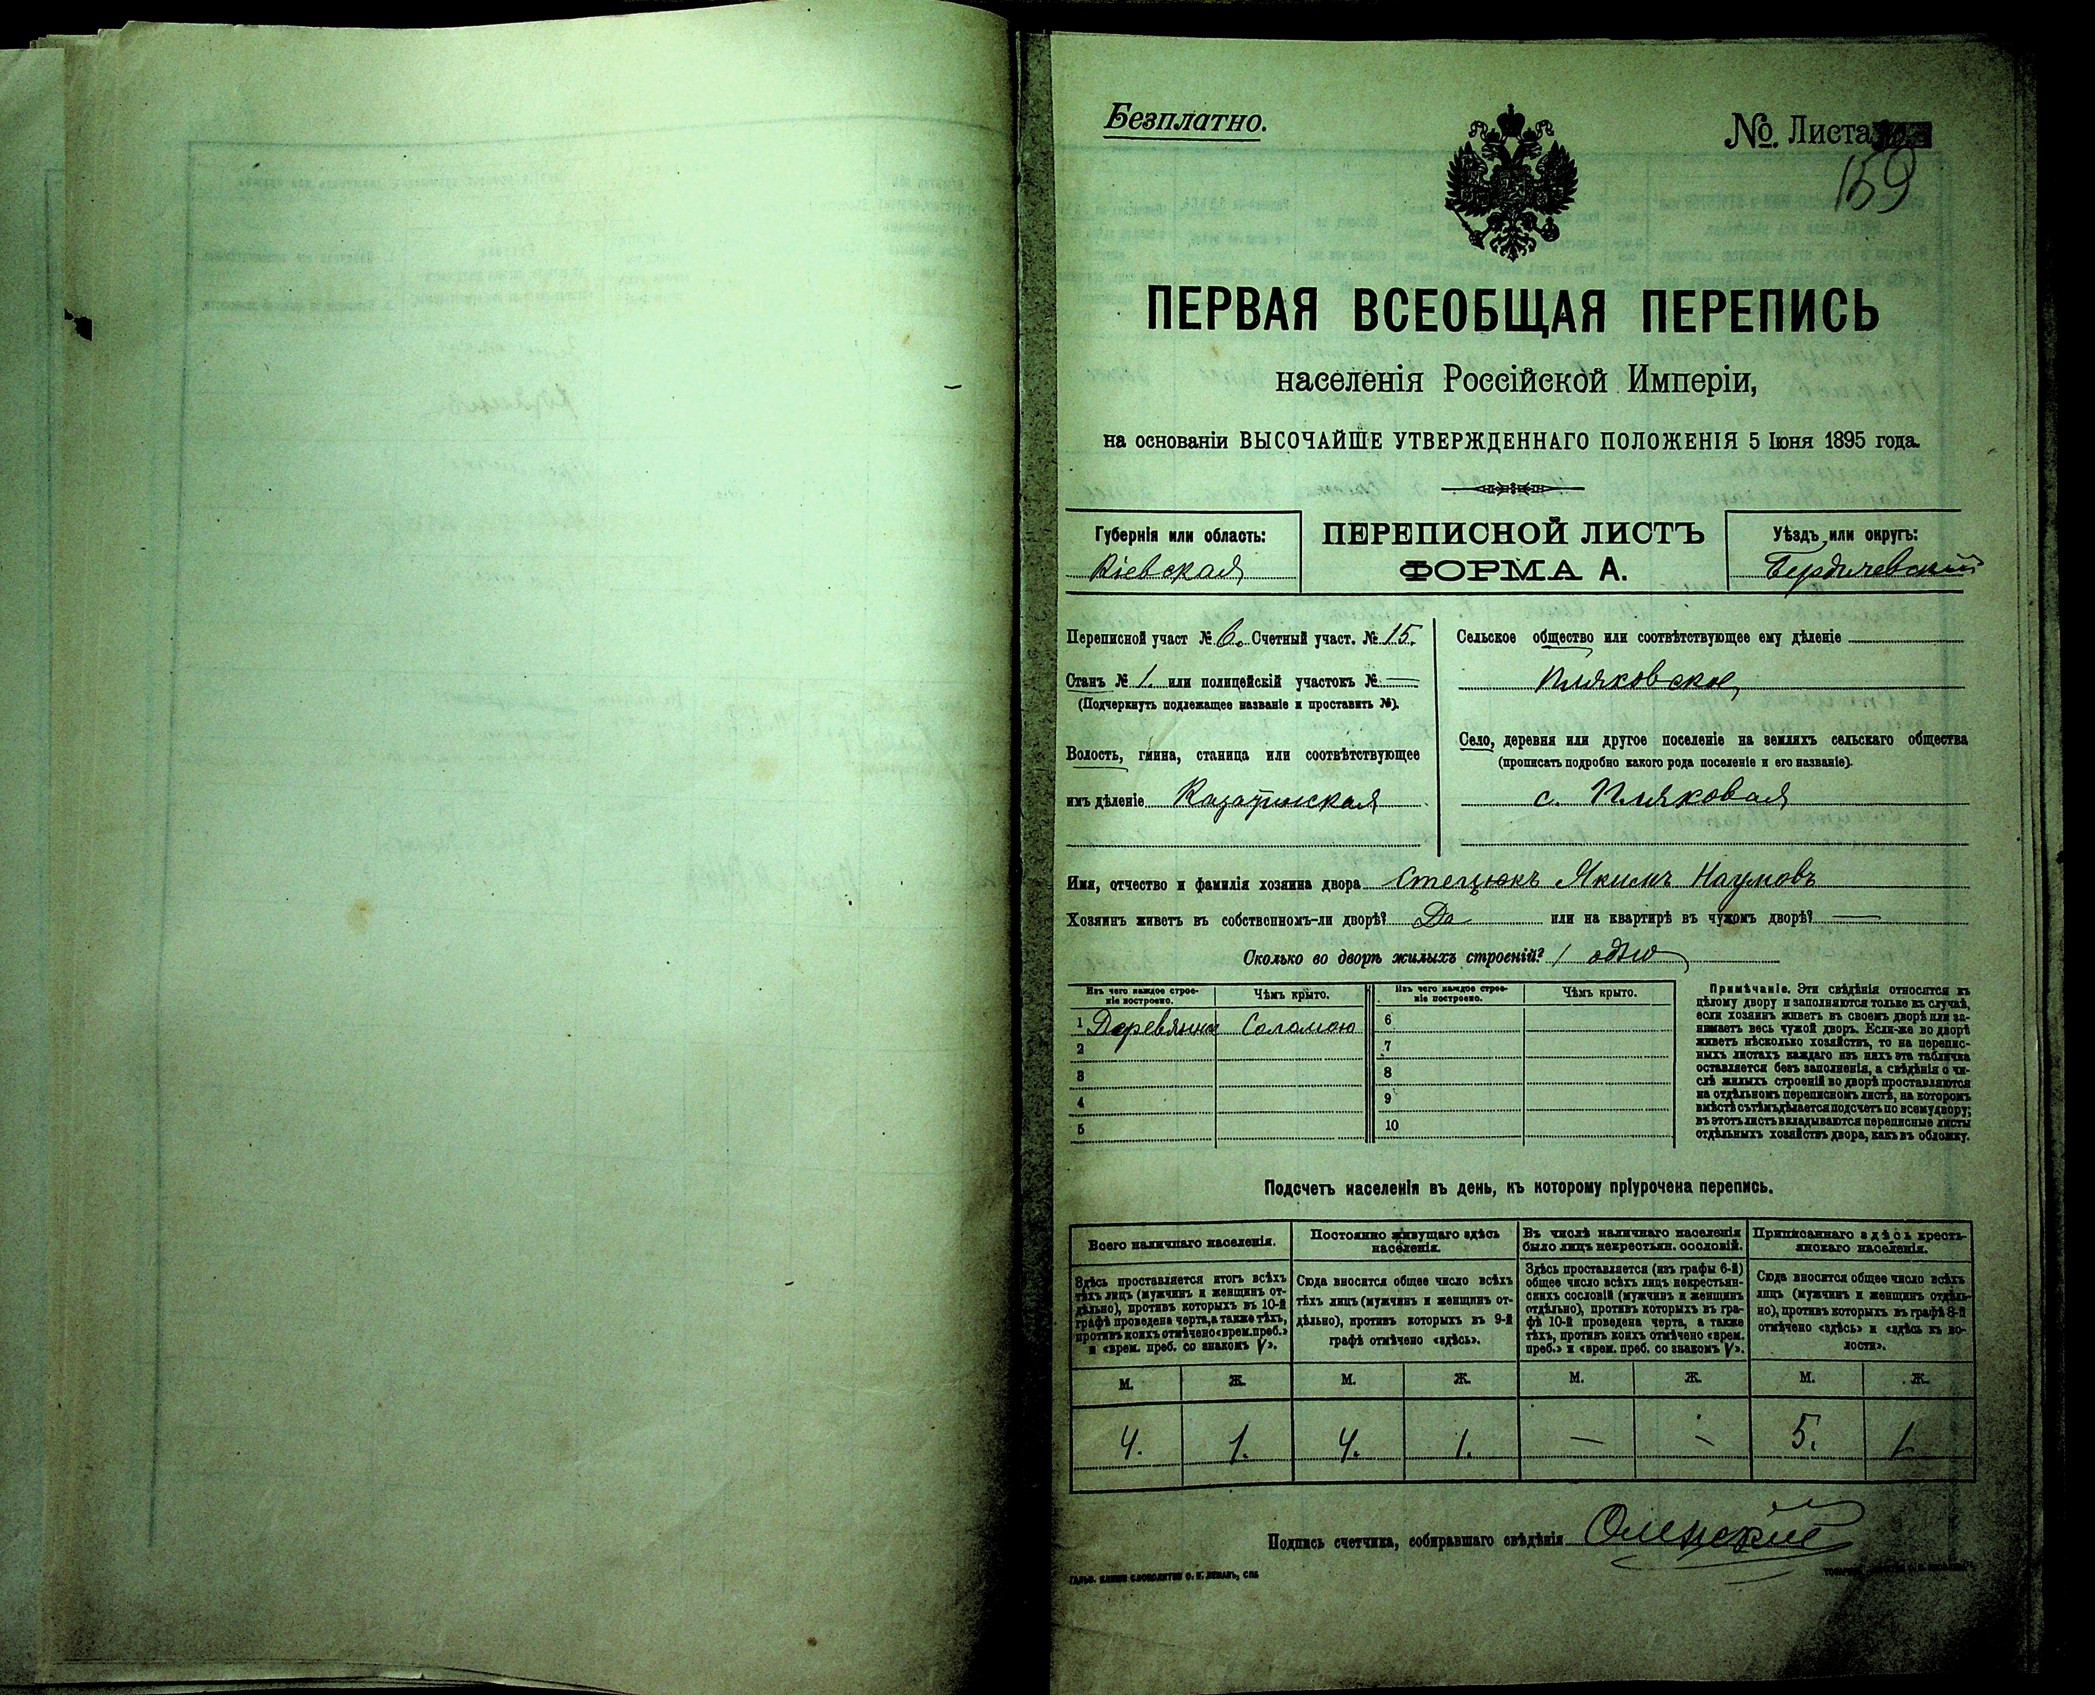 Безплатно.
№ Листа
159
ПЕРВАЯ ВСЕОБЩАЯ ПЕРЕПИСЬ
населенія Россійской Имперіи,
на основаніи ВЫСОЧАЙШЕ УТВЕРЖДЕННАГО ПОЛОЖЕНІЯ 5 Іюня 1895 года.
Губернія или область:
Кіевская
ПЕРЕПИСНОЙ ЛИСТЪ
ФОРМА А.
Уѣздъ или округъ:
Бердичевскій
Переписной участ № 6. Счетный участ. № 15.
Станъ № 1. или полицейскій участокъ № —
(Подчеркнуть подлежащее названіе и проставить №).
Волость, гмина, станица или соотвѣтствующее
имъ дѣленіе Казатинская
Сельское общество или соотвѣтствующее ему дѣленіе
Пляковское
Село, деревня или другое поселеніе на земляхъ сельскаго общества
(прописать подробно какого рода поселеніе и его названіе).
с. Пляковая
Имя, отчество и фамилія хозяина двора Стецюкъ Якимъ Наумовъ
Хозяинъ живетъ въ собственномъ-ли дворѣ? Да или на квартирѣ въ чужомъ дворѣ? —
Сколько во дворѣ жилыхъ строеній? 1 одно
Изъ чего каждое строеніе построено.
Чѣмъ крыто.
Изъ чего каждое строеніе построено.
Чѣмъ крыто.
1 Деревянное Соломою
2
3
4
5
6
7
8
9
10
Примѣчаніе. Эти свѣдѣнія относятся къ
цѣлому двору и заполняются только въ случаѣ,
если хозяинъ живетъ въ своемъ дворѣ или за-
нимаетъ весь чужой дворъ. Если-же во дворѣ
живетъ нѣсколько хозяйствъ, то на перепис-
ныхъ листахъ каждаго изъ нихъ эта табличка
оставляется безъ заполненія, а свѣдѣнія о чи-
слѣ жилыхъ строеній во дворѣ проставляются
на отдѣльномъ переписномъ листѣ, на которомъ
вмѣстѣ съ тѣмъ дѣлается подсчетъ по всему двору;
въ этотъ листъ вкладываются переписные листы
отдѣльныхъ хозяйствъ двора, какъ въ обложку.
Подсчетъ населенія въ день, къ которому пріурочена перепись.
Всего наличнаго населенія.
Здѣсь проставляется итогъ всѣхъ
тѣхъ лицъ (мужчинъ и женщинъ от-
дѣльно), противъ которыхъ въ 10-й
графѣ проведена черта, а также тѣхъ,
противъ коихъ отмѣчено «врем. преб.»
и «врем. преб. со знакомъ V».
Постоянно живущаго здѣсь
населенія.
Сюда вносится общее число всѣхъ
тѣхъ лицъ (мужчинъ и женщинъ от-
дѣльно), противъ которыхъ въ 9-й
графѣ отмѣчено «здѣсь».
Въ числѣ наличнаго населенія
было лицъ некрестьян. сословій.
Здѣсь проставляется (изъ графы 6-й)
общее число всѣхъ лицъ некрестьян-
скихъ сословій (мужчинъ и женщинъ
отдѣльно), противъ которыхъ въ гра-
фѣ 10-й проведена черта, а также
тѣхъ, противъ коихъ отмѣчено «врем.
преб.» и «врем. преб. со знакомъ V».
Приписаннаго здѣсь кресть-
янскаго населенія.
Сюда вносится общее число всѣхъ
лицъ (мужчинъ и женщинъ отдѣль-
но), противъ которыхъ въ графѣ 8-й
отмѣчено «здѣсь» и «здѣсь къ во-
лости».
М. Ж. М. Ж. М. Ж. М. Ж.
4. 1. 4. 1. — — 5. 1
Подпись счетчика, собиравшаго свѣдѣнія